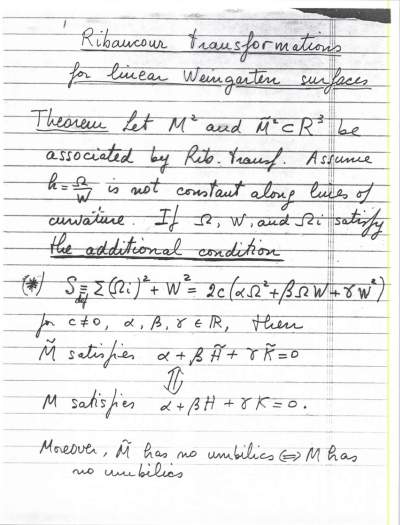 Ribaucour transformations
for linear Weingarten surfaces
Theorem Let M² and M̃² ⊂ R³ be
associated by Rib. transf. Assume
h = Ω/W is not constant along lines of
curvature. If Ω, W, and Ωi satisfy
the additional condition
(*) S ≡ Σ(Ωi)² + W² = 2c(αΩ² + βΩW + γW²)
def
for c≠0, α, β, γ ∈ R, then
M̃ satisfies α + βH̃ + γK̃ = 0
⇕
M satisfies α + βH + γK = 0.
Moreover, M̃ has no umbilics ⇔ M has
no umbilics